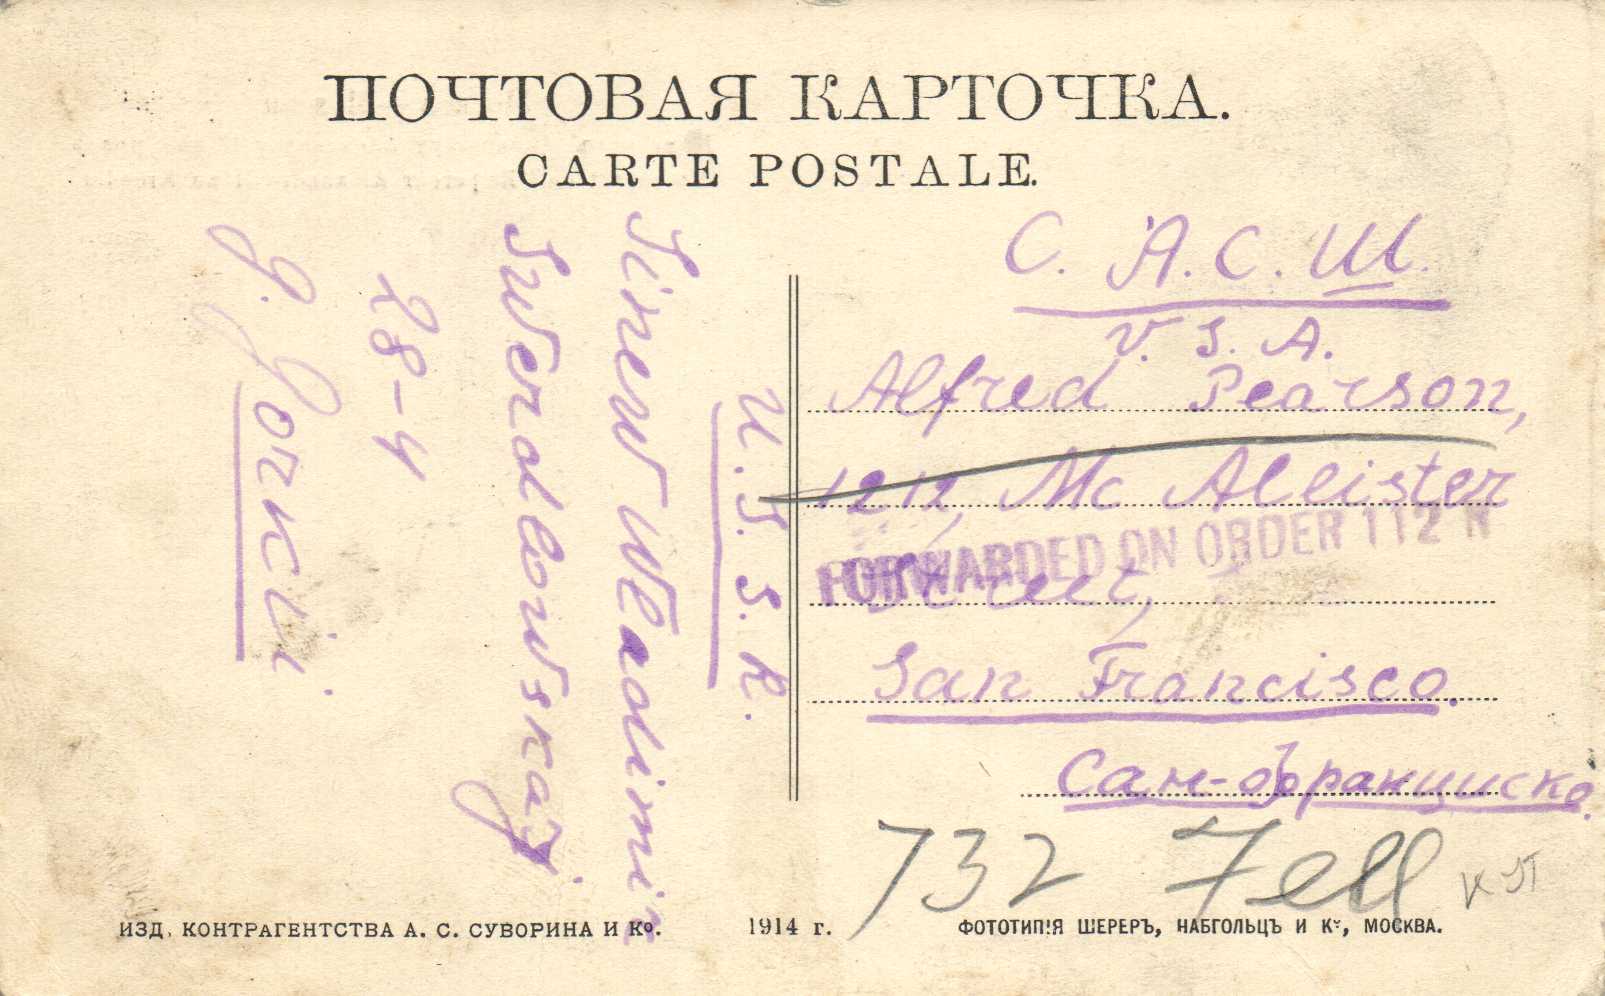 ПОЧТОВАЯ КАРТОЧКА.
CARTE POSTALE.
С. А. С. Ш.
U. S. A.
Alfred Pearson,
1212, Mc Alleister
FORWARDED ON ORDER 112 N
Street,
San Francisco.
Сан-Франциско.
732 Fell
КП
U. S. S. R.
Wladimir
Swerdlowskaj.
28-4
g. Gorki.
ИЗД. КОНТРАГЕНТСТВА А. С. СУВОРИНА И Ко.
1914 г.
ФОТОТИПІЯ ШЕРЕРЪ, НАБГОЛЬЦЪ И Ко, МОСКВА.